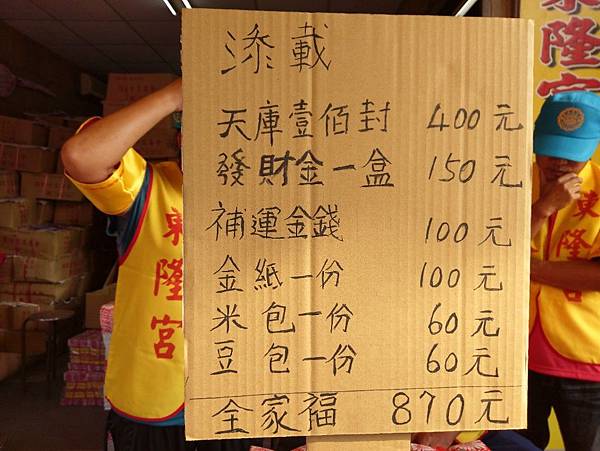 添載
天庫壹佰封 400元
發財金一盒 150元
補運金錢 100元
金紙一份 100元
米包一份 60元
豆包一份 60元
全家福 870元
東隆宮
東隆宮
東隆宮